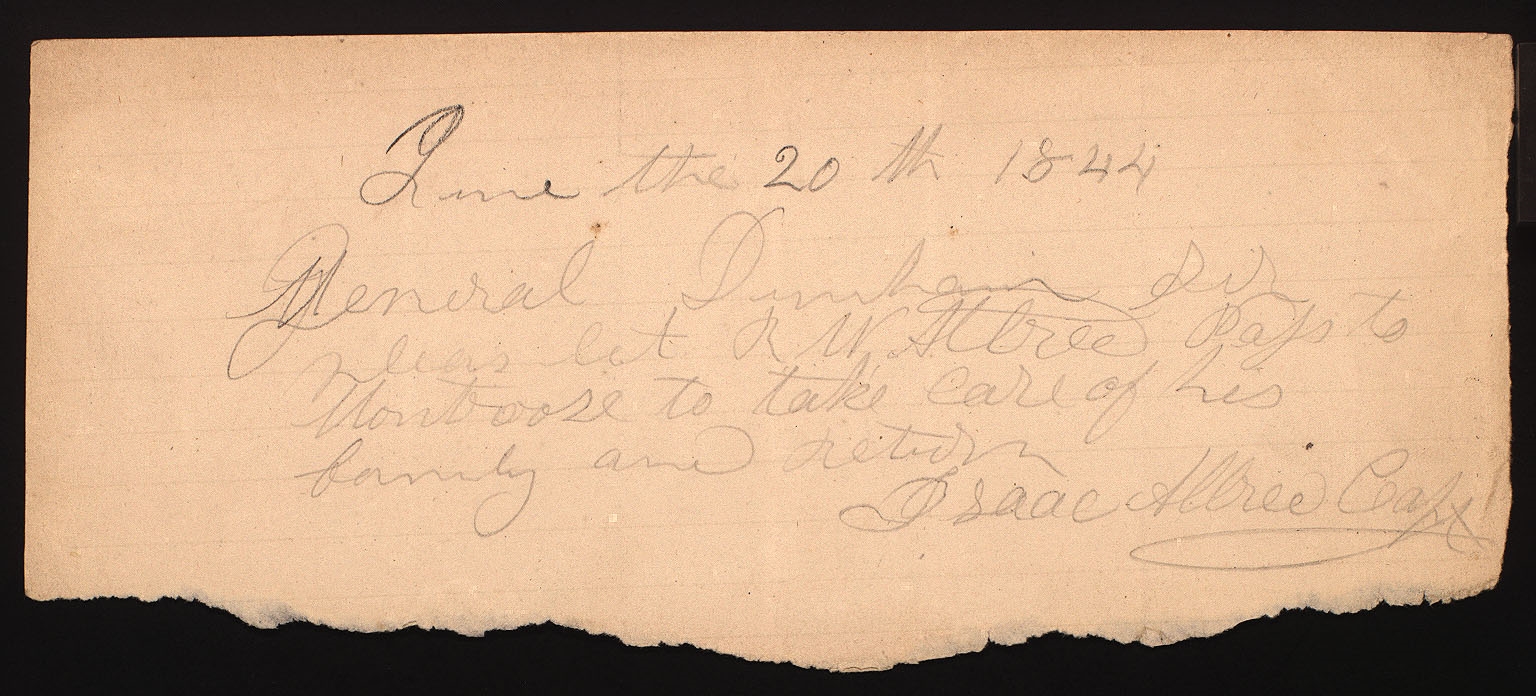 June the 20 th 1844
General Dunham Sir
pleas let R W Allred Pass to
Montroose to take care of his
family and return
Isaac Allred Capt